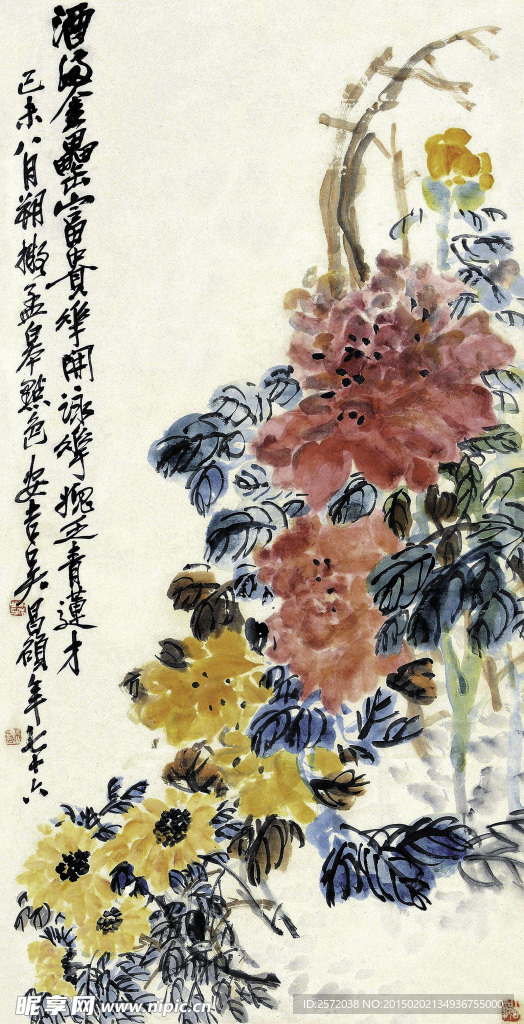 酒满金罍富贵华开咏华愧乏青莲才
己未八月朔撫孟皋點色安吉吴昌硕年七十六
昵享网 www.nipic.cn
ID:2572038 NO:20150202134936755000